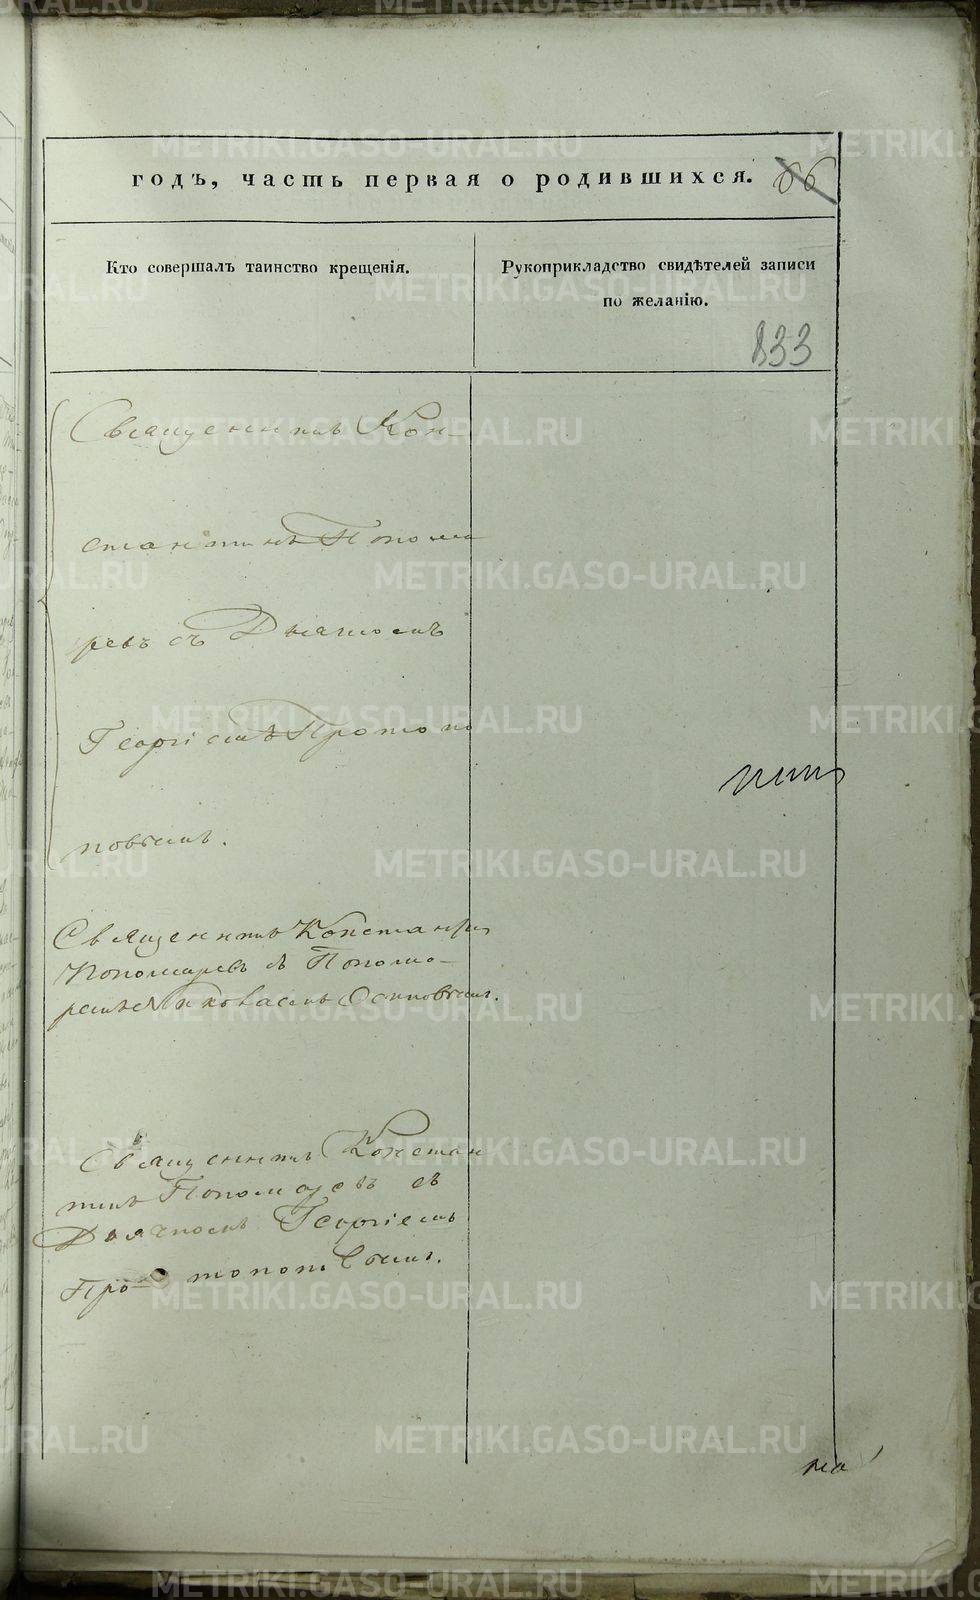 годъ, часть первая о родившихся. 66
Кто совершалъ таинство крещенія.
Рукоприкладство свидѣтелей записи
по желанію.
833
Священникъ Кон-
стантинъ Понома
ревъ съ Дьячкомъ
Георгіемъ Протопо
повымъ.
Священникъ Константинъ
Пономаревъ съ Понома-
ремъ Осиповымъ.
Священникъ Констан
тинъ Пономаревъ съ
Дьячкомъ Георгіемъ
Протопоповымъ.
METRIKI.GASO-URAL.RU